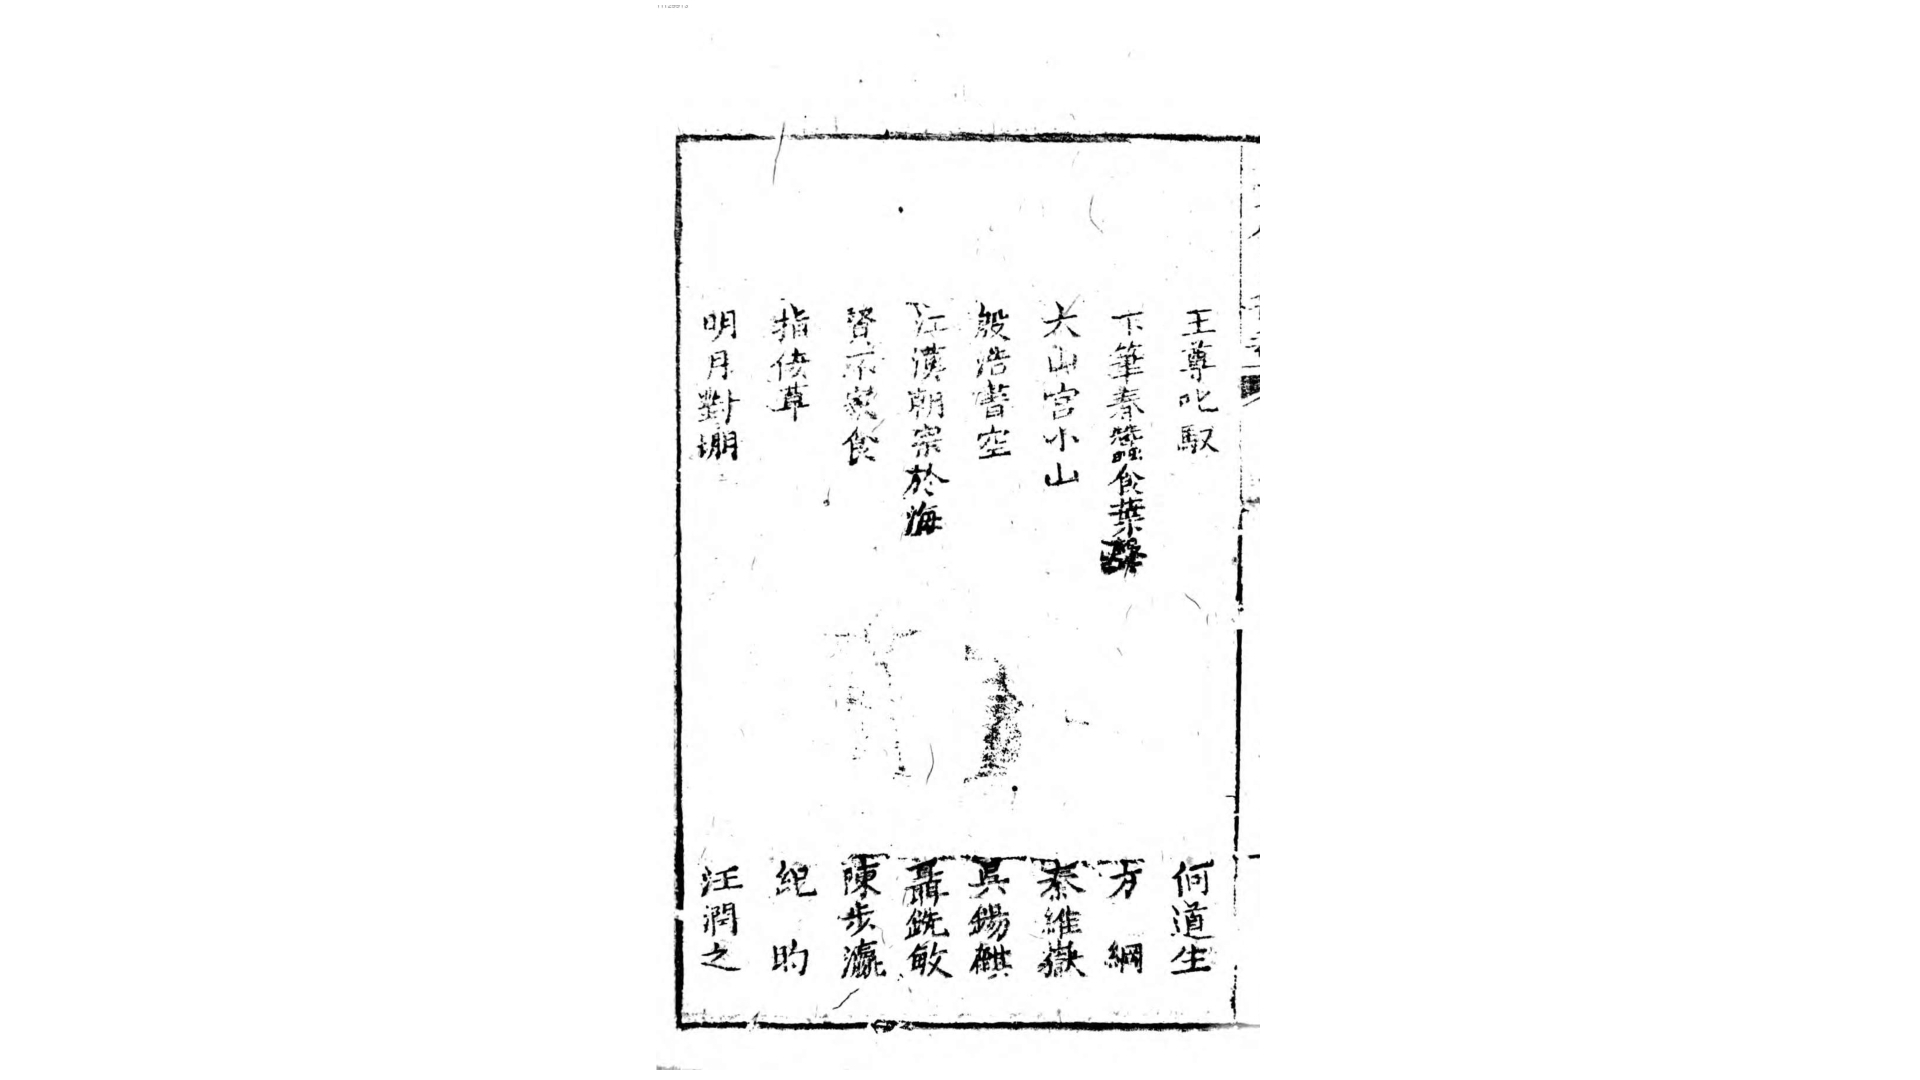 王尊叱馭 何道生
下筆春蠶食葉聲 方綱
大山宮小山 秦維嶽
殷浩書空 吳錫麒
江漢朝宗於海 聶銑敏
賢不家食 陳步瀛
指佞草 紀昀
明月對堋 汪潤之